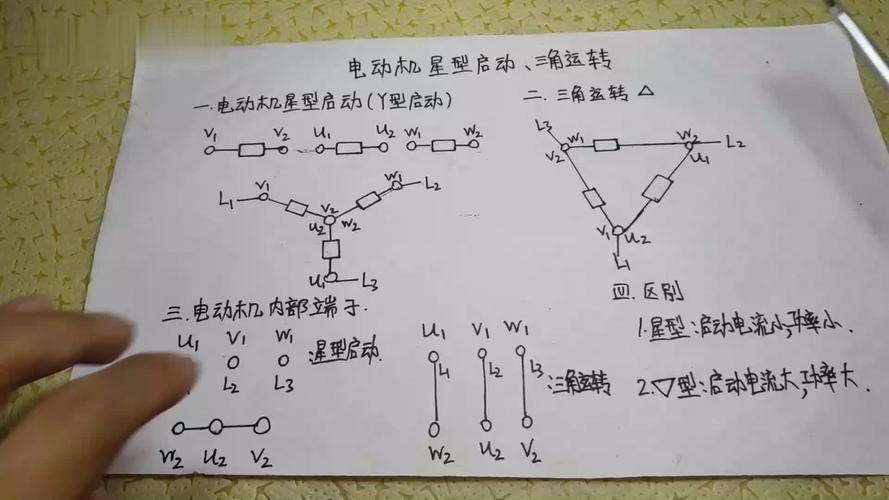 电动机星型启动、三角运转
一.电动机星型启动(Y型启动)
V1 V2 U1 U2 W1 W2
L1 V1 V2 U2 W2 W1 L2
U1 L3
二.三角运转 △
L3 W1 V2 W2 U1 L2
V1 U2
L1
三.电动机内部端子.
U1 V1 W1 :星型启动
L2 L3
W2 U2 V2
U1 V1 W1
L1 L2 L3 :三角运转
W2 U2 V2
四.区别
1.星型:启动电流小,功率小.
2.▽型:启动电流大,功率大.